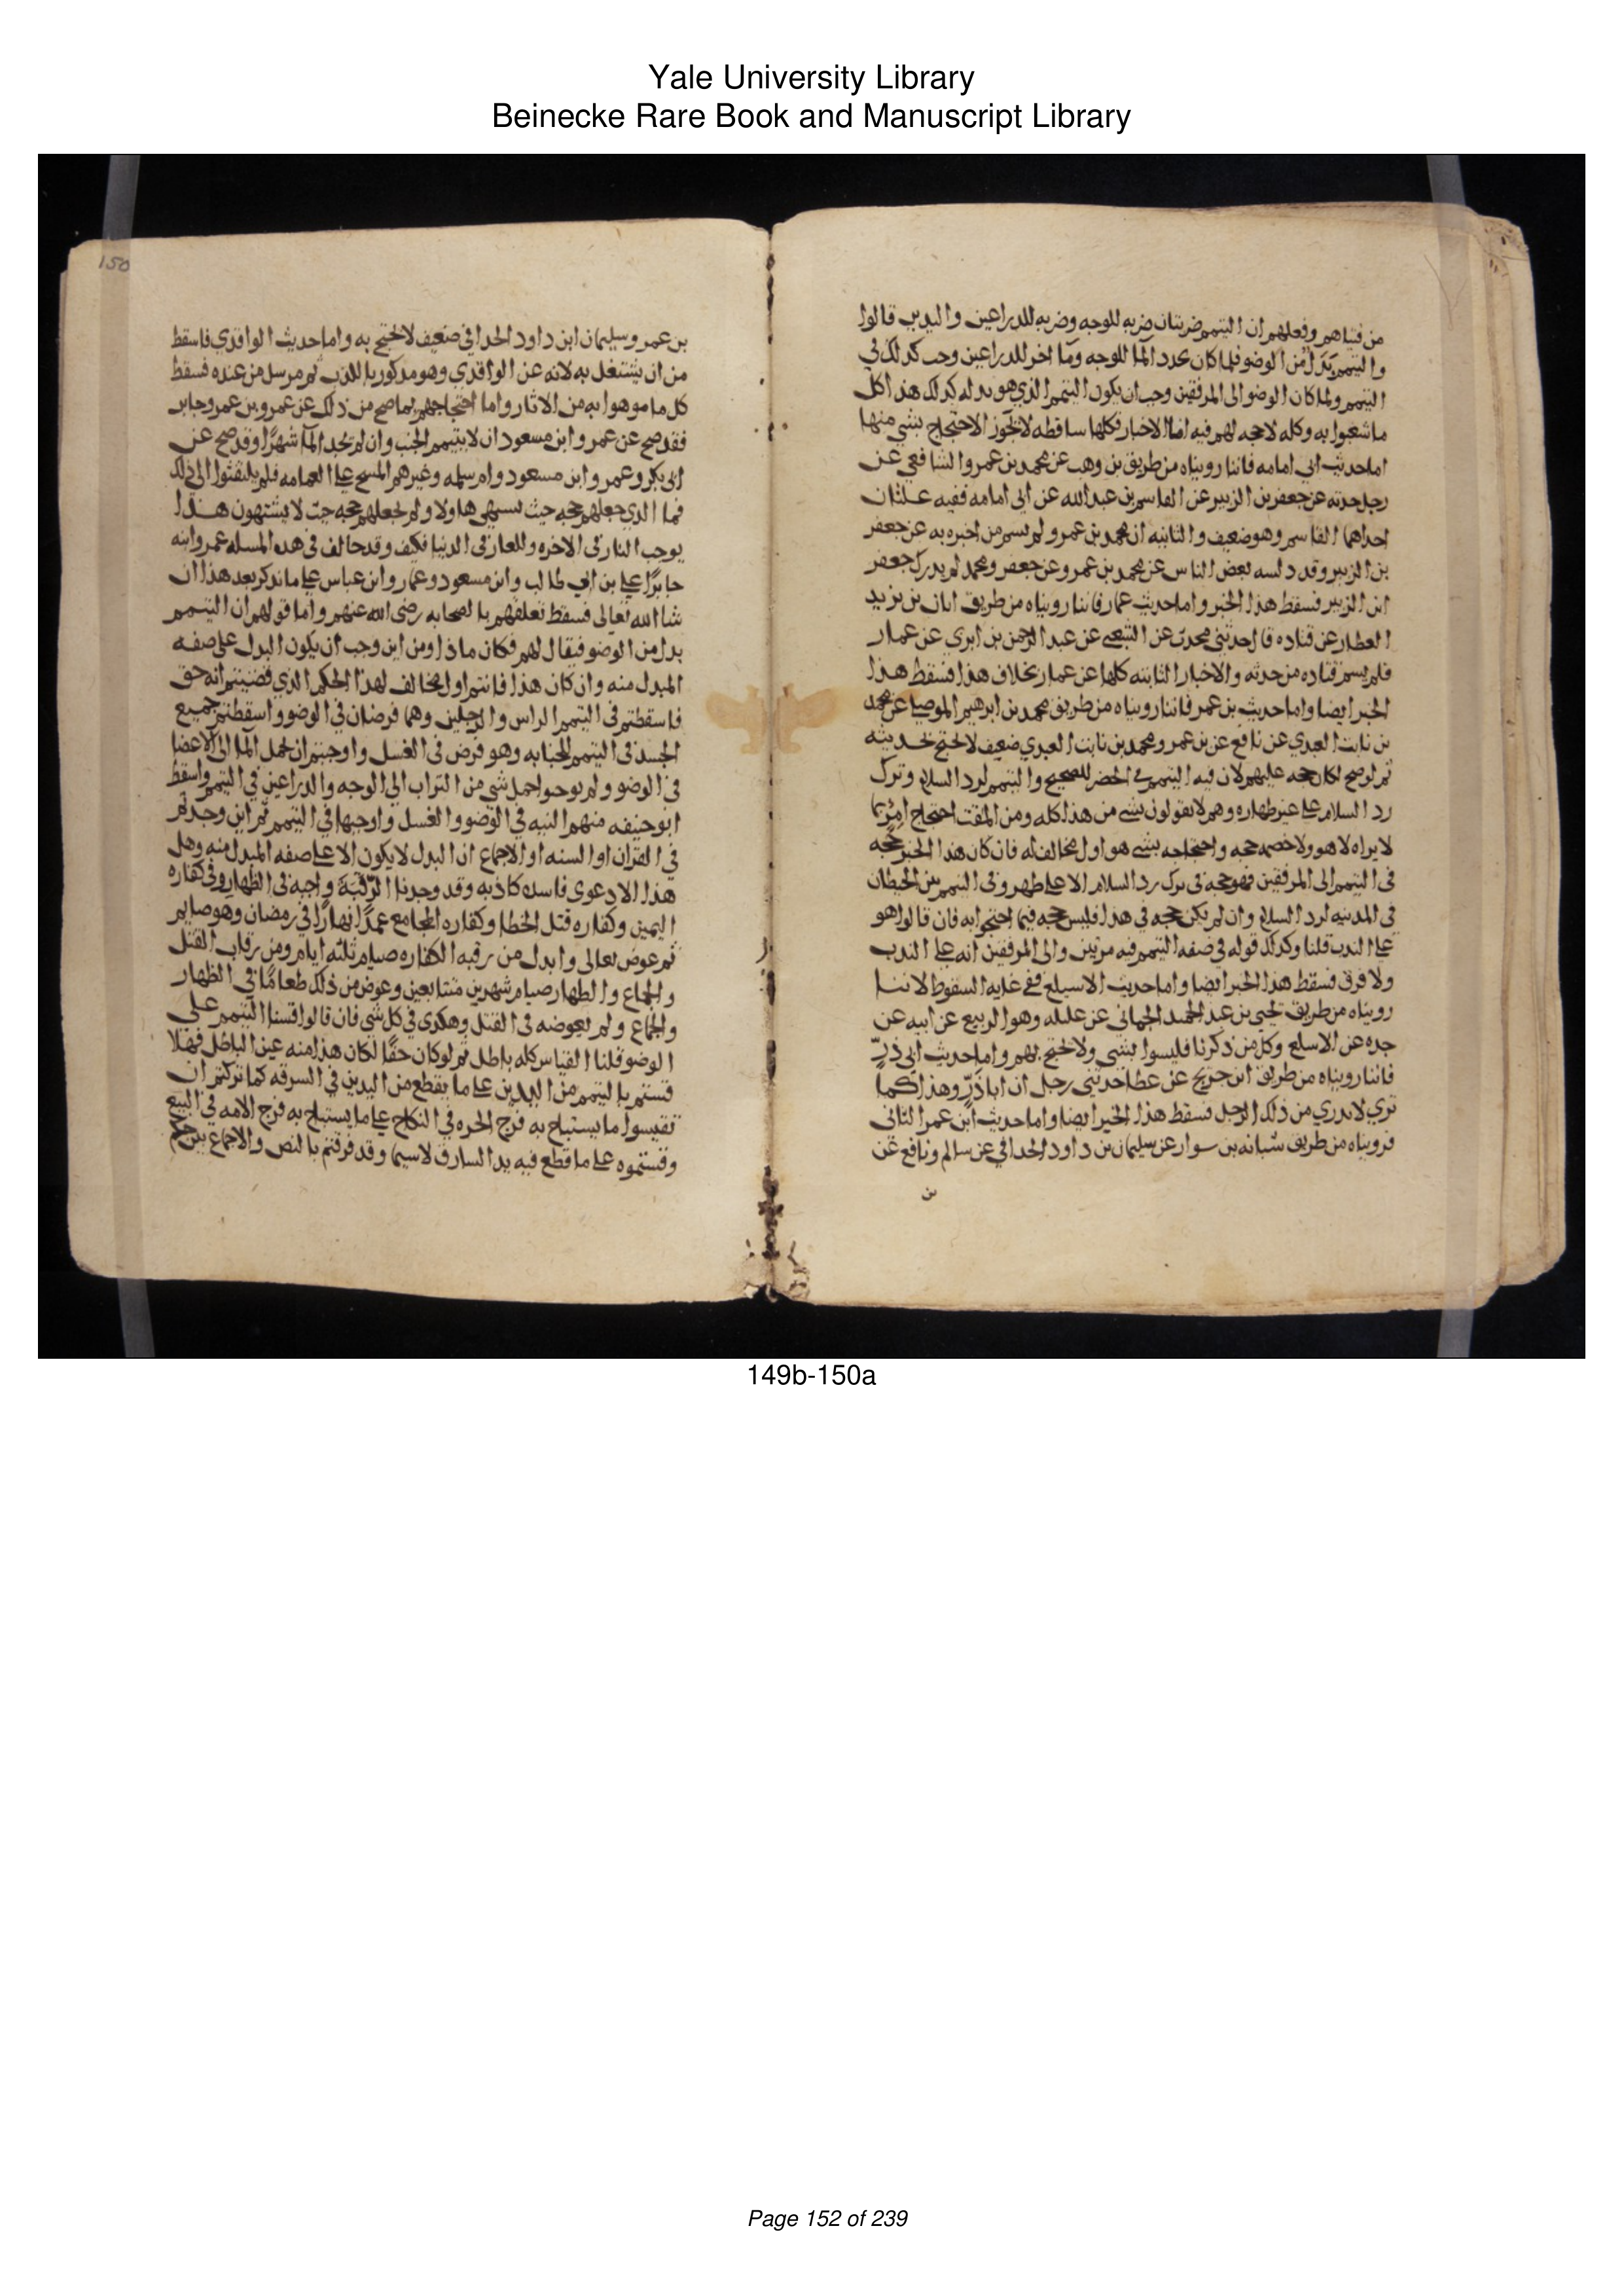 Yale University Library
Beinecke Rare Book and Manuscript Library
من فتياهم وفعلهم ان التيمم ضربتان ضربه للوجه وضربه للذراعين واليدين قالوا
والتيمم بدل من الوضو فلما كان يجدد الما للوجه وما اخر للذراعين وجب كذلك في
التيمم ولما كان الوضو الى المرفقين وجب ان يكون التيمم الذي هو بدله كذلك هذا كل
ما شغبوا به وكله لا حجه لهم فيه اما الاخبار فكلها ساقطه لا يجوز الاحتجاج بشي منها
اما حديث ابي امامه فاننا رويناه من طريق بن وهب عن محمد بن عمرو الشافعي عن
رجل حدثه عن جعفر بن الزبير عن القاسم بن عبد الله عن ابي امامه ففيه علتان
احداهما القاسم وهو ضعيف والثانيه ان محمد بن عمرو لم يسم من اخبره به عن جعفر
بن الزبير وقد دلسه بعض الناس عن محمد بن عمرو عن جعفر ومحمد لم يدرك جعفر
ابن الزبير فسقط هذا الخبر واما حديث عمار فاننا رويناه من طريق ابان بن يزيد
العطار عن قتاده قال حدثني محدث عن الشعبي عن عبد الرحمن بن ابزي عن عمار
فلم يسم قتاده من حدثه والاخبار الثابته كلها عن عمار بخلاف هذا فسقط هذا
الخبر ايضا واما حديث بن عمر فاننا رويناه من طريق محمد بن ابرهيم الموصلي عن محمد
بن ثابت العبدي عن نافع عن بن عمر ومحمد بن ثابت العبدي ضعيف لا يحتج بحديثه
ثم لو صح لكان حجه عليهم لان فيه التيمم في الحضر للصحيح والتيمم لرد السلام وترك
رد السلام على غير طهاره وهم لا يقولون بشي من هذا كله ومن المقت احتجاج امرئ بما
لا يراه لا هو ولا خصمه حجه واحتجاجه بشي هو اول مخالف له فان كان هذا الخبر حجه
في التيمم الى المرفقين فهو حجه في ترك رد السلام الا على طهر وفي التيمم بين الحيطان
في المدينه لرد السلام وان لم يكن حجه في هذا فليس حجه فيما احتجوا به فان قالوا هو
على الندب قلنا وكذلك قوله في صفه التيمم فيه مرتين والى المرفقين انه على الندب
ولا فرق فسقط هذا الخبر ايضا واما حديث الاسلع ففي غايه السقوط لاننا
رويناه من طريق يحيى بن عبد الحميد الحماني عن عليله وهو الربيع عن ابيه عن
جده عن الاسلع وكل من ذكرنا فليسوا بشي ولا يحتج بهم واما حديث ابي ذرّ
فاننا رويناه من طريق ابن جريج عن عطا حدثني رجل ان اباذرّ وهذا كما
تري لا ندري من ذلك الرجل فسقط هذا الخبر ايضا واما حديث ابن عمر الثاني
فرويناه من طريق شبابه بن سوار عن سليمان بن داود الحداني عن سالم ونافع عن
بن
150
بن عمر وسليمان ابن داود الحداني ضعيف لا يحتج به واما حديث الواقدي فاسقط
من ان يشتغل به لانه عن الواقدي وهو مذكور بالكذب ثم مرسل من عنده فسقط
كل ما موهوا به من الاثار واما احتجاجهم بما صح من ذلك عن عمر وبن عمر وجابر
فقد صح عن عمر وابن مسعود ان لا يتيمم الجنب وان لم يجد الما شهرًا وقد صح عن
ابي بكر وعمر وابن مسعود وام سلمه وغيرهم المسح على العمامه فلم يلتفتوا الى ذلك
فما الذي جعلهم حجه حيث يشتهي هاولا ولم يجعلهم حجه حيث لا يشتهون هذا
يوجب النار في الاخره والعار في الدنيا فكيف وقد خالف في هذه المسله عمر وابنه
جابرًا علي بن ابي طالب وابن مسعود وعمار وابن عباس على ما نذكر بعد هذا ان
شا الله تعالى فسقط تعلقهم بالصحابه رضي الله عنهم واما قولهم ان التيمم
بدل من الوضو فيقال لهم فكان ماذا ومن اين وجب ان يكون البدل على صفه
المبدل منه وان كان هذا فانتم اول مخالف لهذا الحكم الذي قضيتم انه حق
فاسقطتم في التيمم الراس والرجلين وهما فرضان في الوضو واسقطتم جميع
الجسد في التيمم للجنابه وهو فرض في الغسل واوجبتم ان يحمل الما الى الاعضا
في الوضو ولم يوجبوا حمل شي من التراب الى الوجه والذراعين في التيمم واسقط
ابو حنيفه منهم النيه في الوضو والغسل واوجبها في التيمم ثم اين وجدتم
في القران او السنه او الاجماع ان البدل لا يكون الا على صفه المبدل منه وهل
هذا الا دعوى فاسده كاذبه وقد وجدنا الرّقبَة واجبه في الظهار وفي كفاره
اليمين وكفاره قتل الخطا وكفاره المجامع عمدًا نهارًا في رمضان وهو صايم
ثم عوض تعالى وابدل من رقبه الكفاره صيام ثلثه ايام ومن رقاب القتل
والجماع والظهار صيام شهرين متتابعين وعوض من ذلك طعامًا في الظهار
والجماع ولم يعوضه في القتل وهكذي في كل شي فان قالوا قسنا التيمم على
الوضو قلنا القياس كله باطل ثم لو كان حقًا لكان هذا منه عين الباطل فهلا
قستم بالتيمم من اليدين على ما يقطع من اليدين في السرقه كما تركتم ان
تقيسوا ما يستباح به فرج الحره في النكاح على ما يستباح به فرج الامه في البيع
وقستموه على ما قطع فيه يد السارق لاسيما وقد فرقتم بالنص والاجماع بين حكم
149b-150a
Page 152 of 239